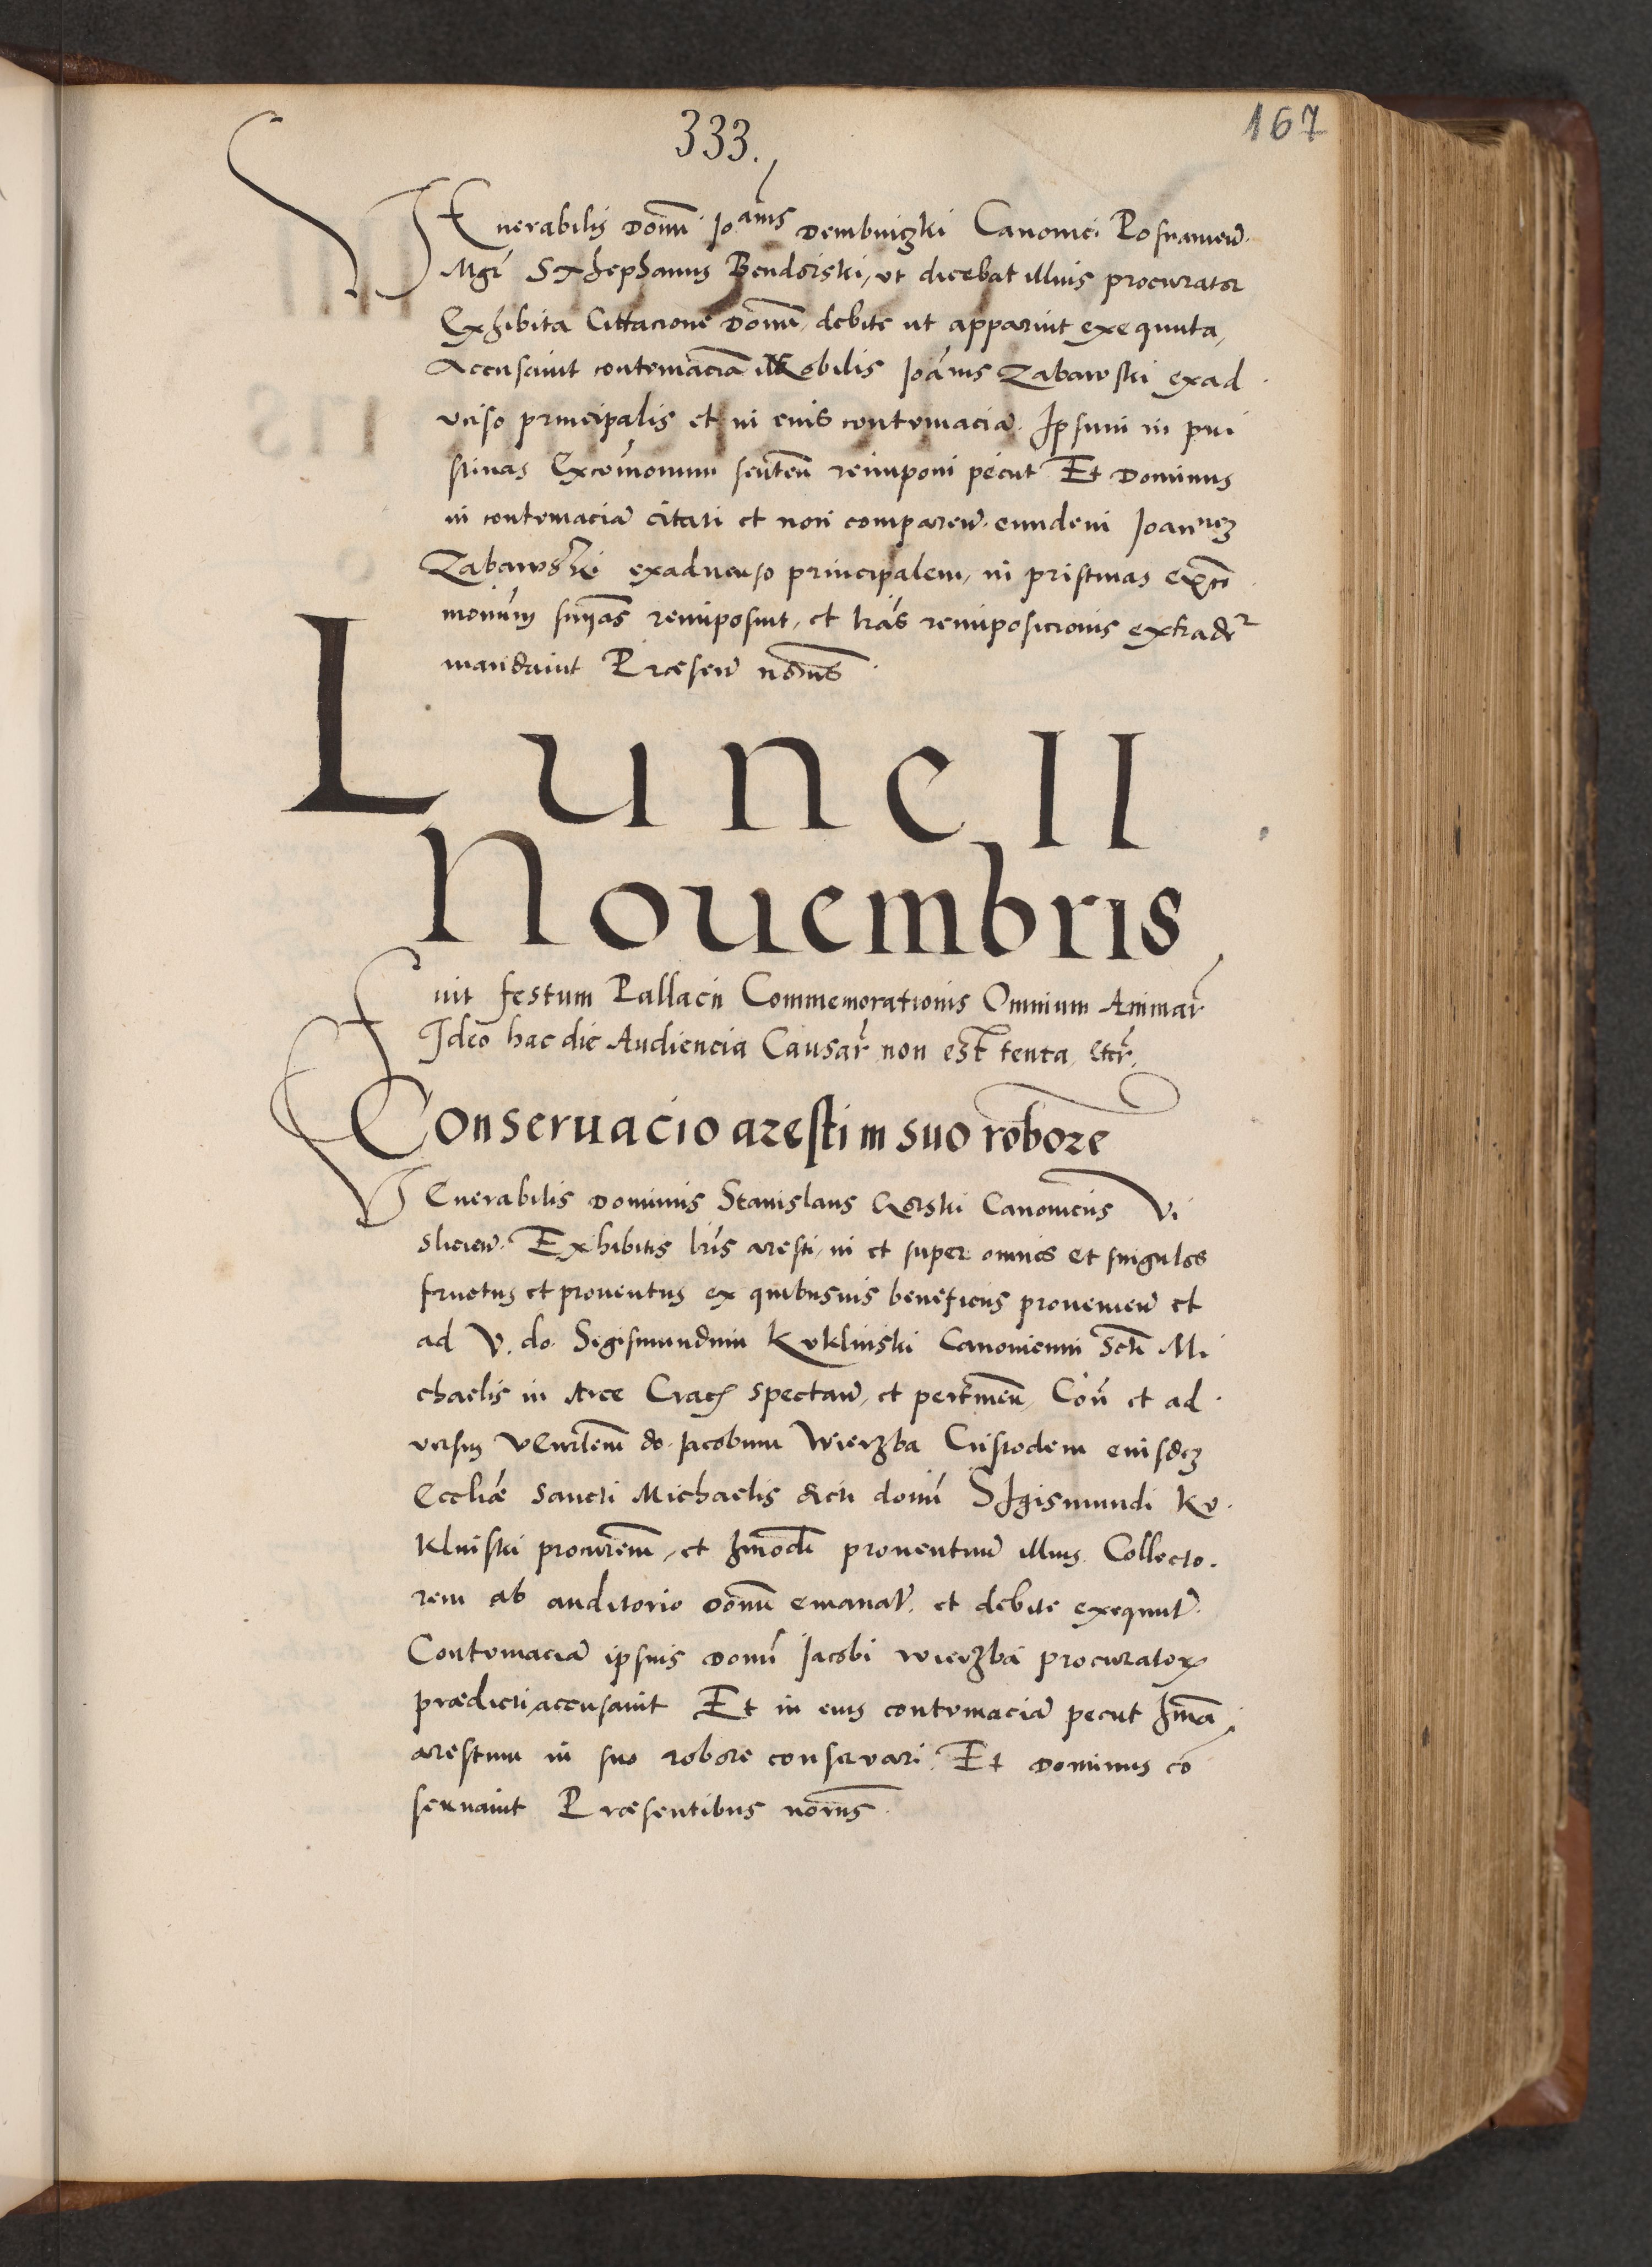 333.
167
VEnerabilis Domi Joanis Dembniczki Canonici Posnanien.
Mgr Stxhephanus Bendorski, ut dicebat illius procurator
Exhibita Cittacione Domi, debite ut apparuit exequuta,
Accusauit contumaciã Nobilis Joãnis Zabawski exad
uerso principalis et in eius contumaciã. Ipsum in pri
stinas Excõmonum senten reimponi peciit Et Dominus
in contumaciã citati et non comparen. eundem Joannez
Zabawski exaduerso principalem, in pristinas exco
monum snias reimposuit, et lras reimposicionis extradi
mandauit Præsen nobus
Lune II
Nouembris
Fuit festum Pallacii Commemorationis Omnium Animar
Ideo hac die Audiencia Causar non est tenta etcr.
Conseruacio aresti in suo robore
VEnerabilis Dominus Stanislaus Gorski Canonicus Vi
slicien. Exhibitis lris aresti, in et super omnes et singulos
fructus et prouentus ex quibusuis beneficiis prouenien et
ad V. do. Sigismundum Kuklinski Canonicum Scti Mi
chaelis in Arce Crac spectan, et pertinen, Con et ad
uersus Venerlem do. Jacobum Wierzba Custodem eiusdez
Eccliæ Sancti Michaelis dicti domi Sigismundi Ku.
klinski procurem, et hmodi prouentuu illius Collecto.
rem ab auditorio Domi emanat. et debite exequut.
Contumaciã ipsius Domi Jacobi Wierzba procurator
prædicti accusauit Et in eius contumaciã peciit hmoi
arestum in suo robore conseruari. Et Dominus cõ
seruauit Præsentibus nobus.